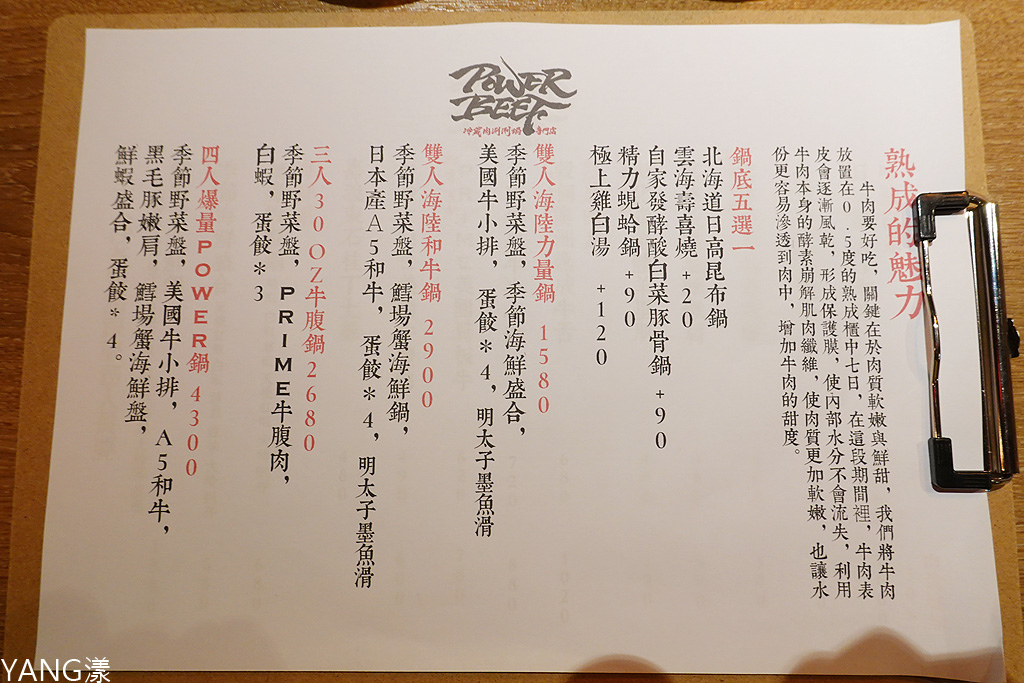 POWER
BEEF
冷藏肉涮涮鍋專門店
熟成的魅力
牛肉要好吃，關鍵在於肉質軟嫩與鮮甜，我們將牛肉
放置在0.5度的熟成櫃中七日，在這段期間裡，牛肉表
皮會逐漸風乾，形成保護膜，使內部水分不會流失，利用
牛肉本身的酵素崩解肌肉纖維，使肉質更加軟嫩，也讓水
份更容易滲透到肉中，增加牛肉的甜度。
鍋底五選一
北海道日高昆布鍋
雲海壽喜燒 +20
自家發酵酸白菜豚骨鍋 +90
精力蜆蛤鍋 +90
極上雞白湯 +120
雙人海陸力量鍋 1580
季節野菜盤，季節海鮮盛合，
美國牛小排， 蛋餃*4，明太子墨魚滑
雙人海陸和牛鍋 2900
季節野菜盤，鱈場蟹海鮮鍋，
日本產A5和牛， 蛋餃*4，明太子墨魚滑
三人30OZ牛腹鍋 2680
季節野菜盤，PRIME牛腹肉，
白蝦，蛋餃*3
四人爆量POWER鍋 4300
季節野菜盤，美國牛小排，A5和牛，
黑毛豚嫩肩，鱈場蟹海鮮盤，
鮮蝦盛合，蛋餃*4。
YANG漾